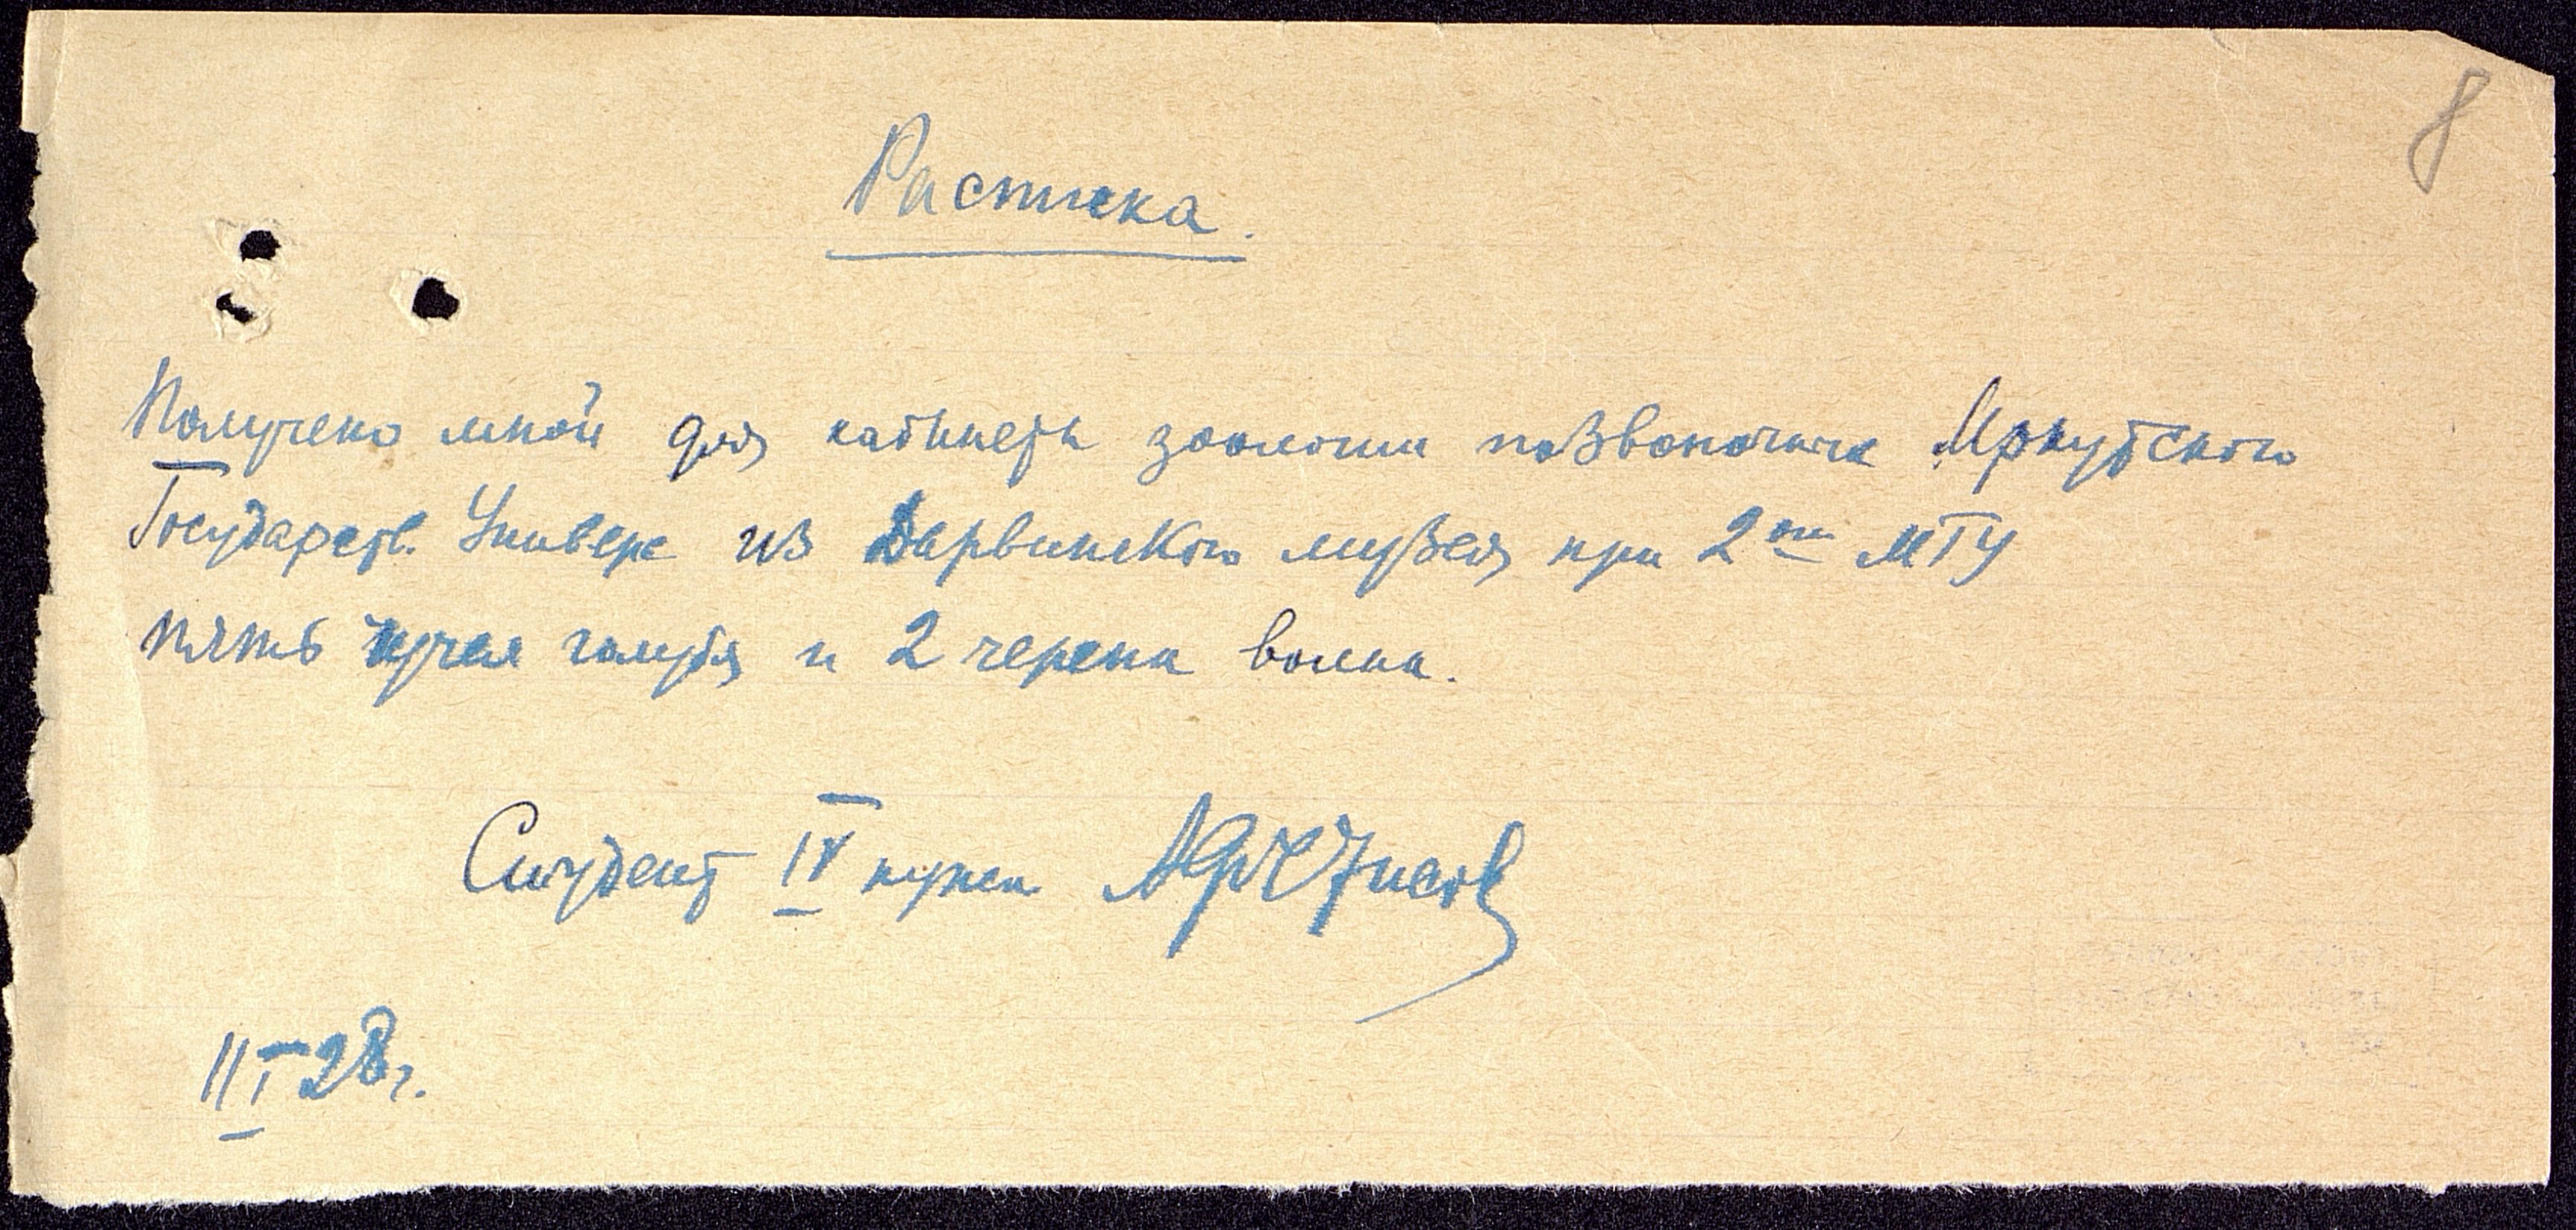 8
Расписка.
Получено мной для кабинета зоологии позвоночных Иркутского
Государств. Универс из Дарвинского музея при 2ом МГУ
пять чучел голубя и 2 черепа волка.
Студент IV курса
11 I 28 г.